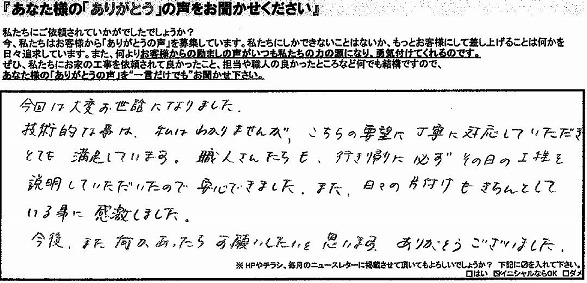 『あなた様の「ありがとう」の声をお聞かせください』
私たちにご依頼されていかがでしたでしょうか？
今、私たちはお客様から「ありがとうの声」を募集しています。私たちにしかできないことはないか、もっとお客様にして差し上げることは何かを
日々追求しています。また、何よりお客様からの励ましの声がいつも私たちの力の源になり、勇気付けてくれるのです。
ぜひ、私たちにお家の工事を依頼されて良かったこと、担当や職人の良かったところなど何でも結構ですので、
あなた様の「ありがとうの声」を“一言だけでも”お聞かせ下さい。
今回は大変お世話になりました。
技術的な事は、私はわかりませんが、こちらの要望に丁寧に対応していただき
とても満足しています。職人さんたちも、行き帰りに必ずその日の工程を
説明していただいたので安心できました。また、日々の片付けもきちんとして
いる事に感激しました。
今後、また何かあったらお願いしたいと思います。ありがとうございました。
※HPやチラシ、毎月のニュースレターに掲載させて頂いてもよろしいでしょうか？ 下記に☑を入れて下さい。
□はい ☑イニシャルならOK □ダメ